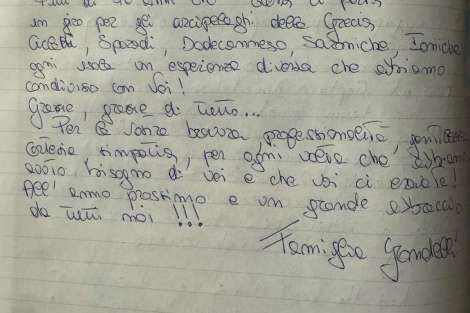 in giro per gli arcipelaghi della Grecia,
Cicladi, Sporadi, Dodecanneso, Saroniche, Ioniche
ogni isola un esperienza diversa che abbiamo
condiviso con Voi!
Grazie, grazie di tutto...
Per la Vostra bravura professionalità, gentilezza
cortesia simpatia, per ogni volta che abbiamo
avuto bisogno di voi e che voi ci eravate!
All' anno prossimo e un grande abbraccio
da tutti noi !!!
Famiglia